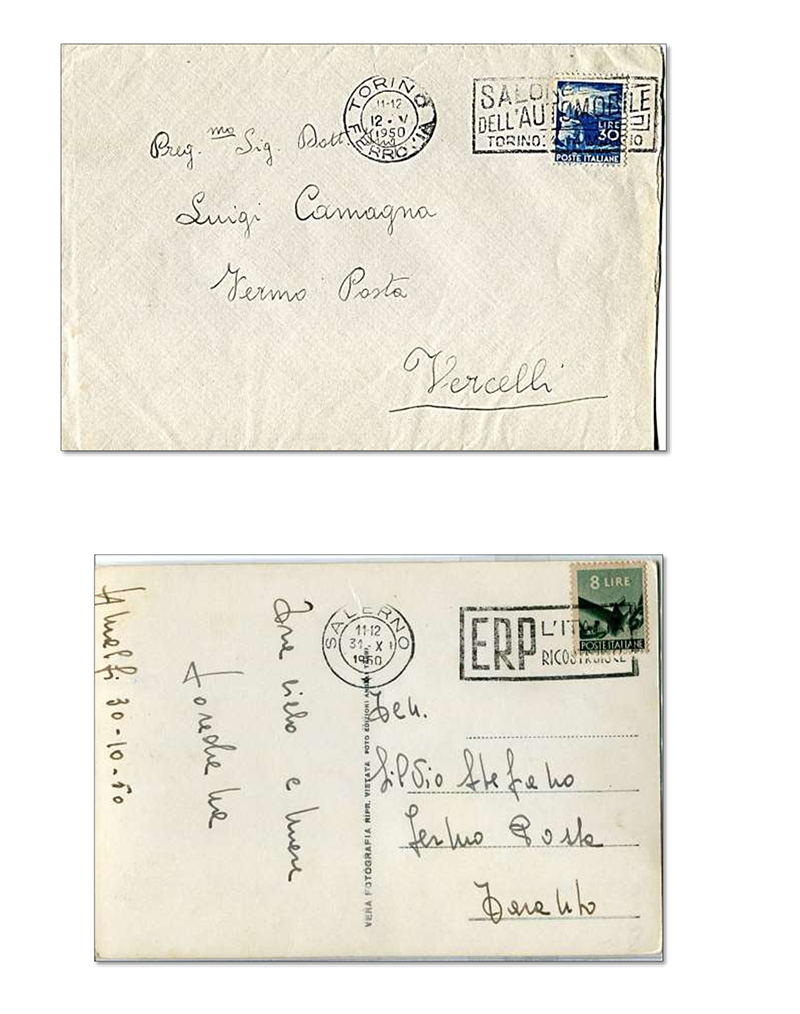 TORINO
11-12
12 · V
1950
FERROVIA
SALONE
DELL'AUTOMOBILE
TORINO:
LIRE
30
POSTE ITALIANE
Preg.mo Sig. Dott.
Luigi Camagna
Fermo Posta
Vercelli
8 LIRE
POSTE ITALIANE
SALERNO
11-12
31 X
1950
ERP L'ITALIA
RICOSTRUISCE
Amalfi 30-10-50
Tra cielo e mare
VERA FOTOGRAFIA RIPR. VIETATA FOTO EDIZIONI
Ten.
Silvio Stefano
Fermo Posta
Taranto